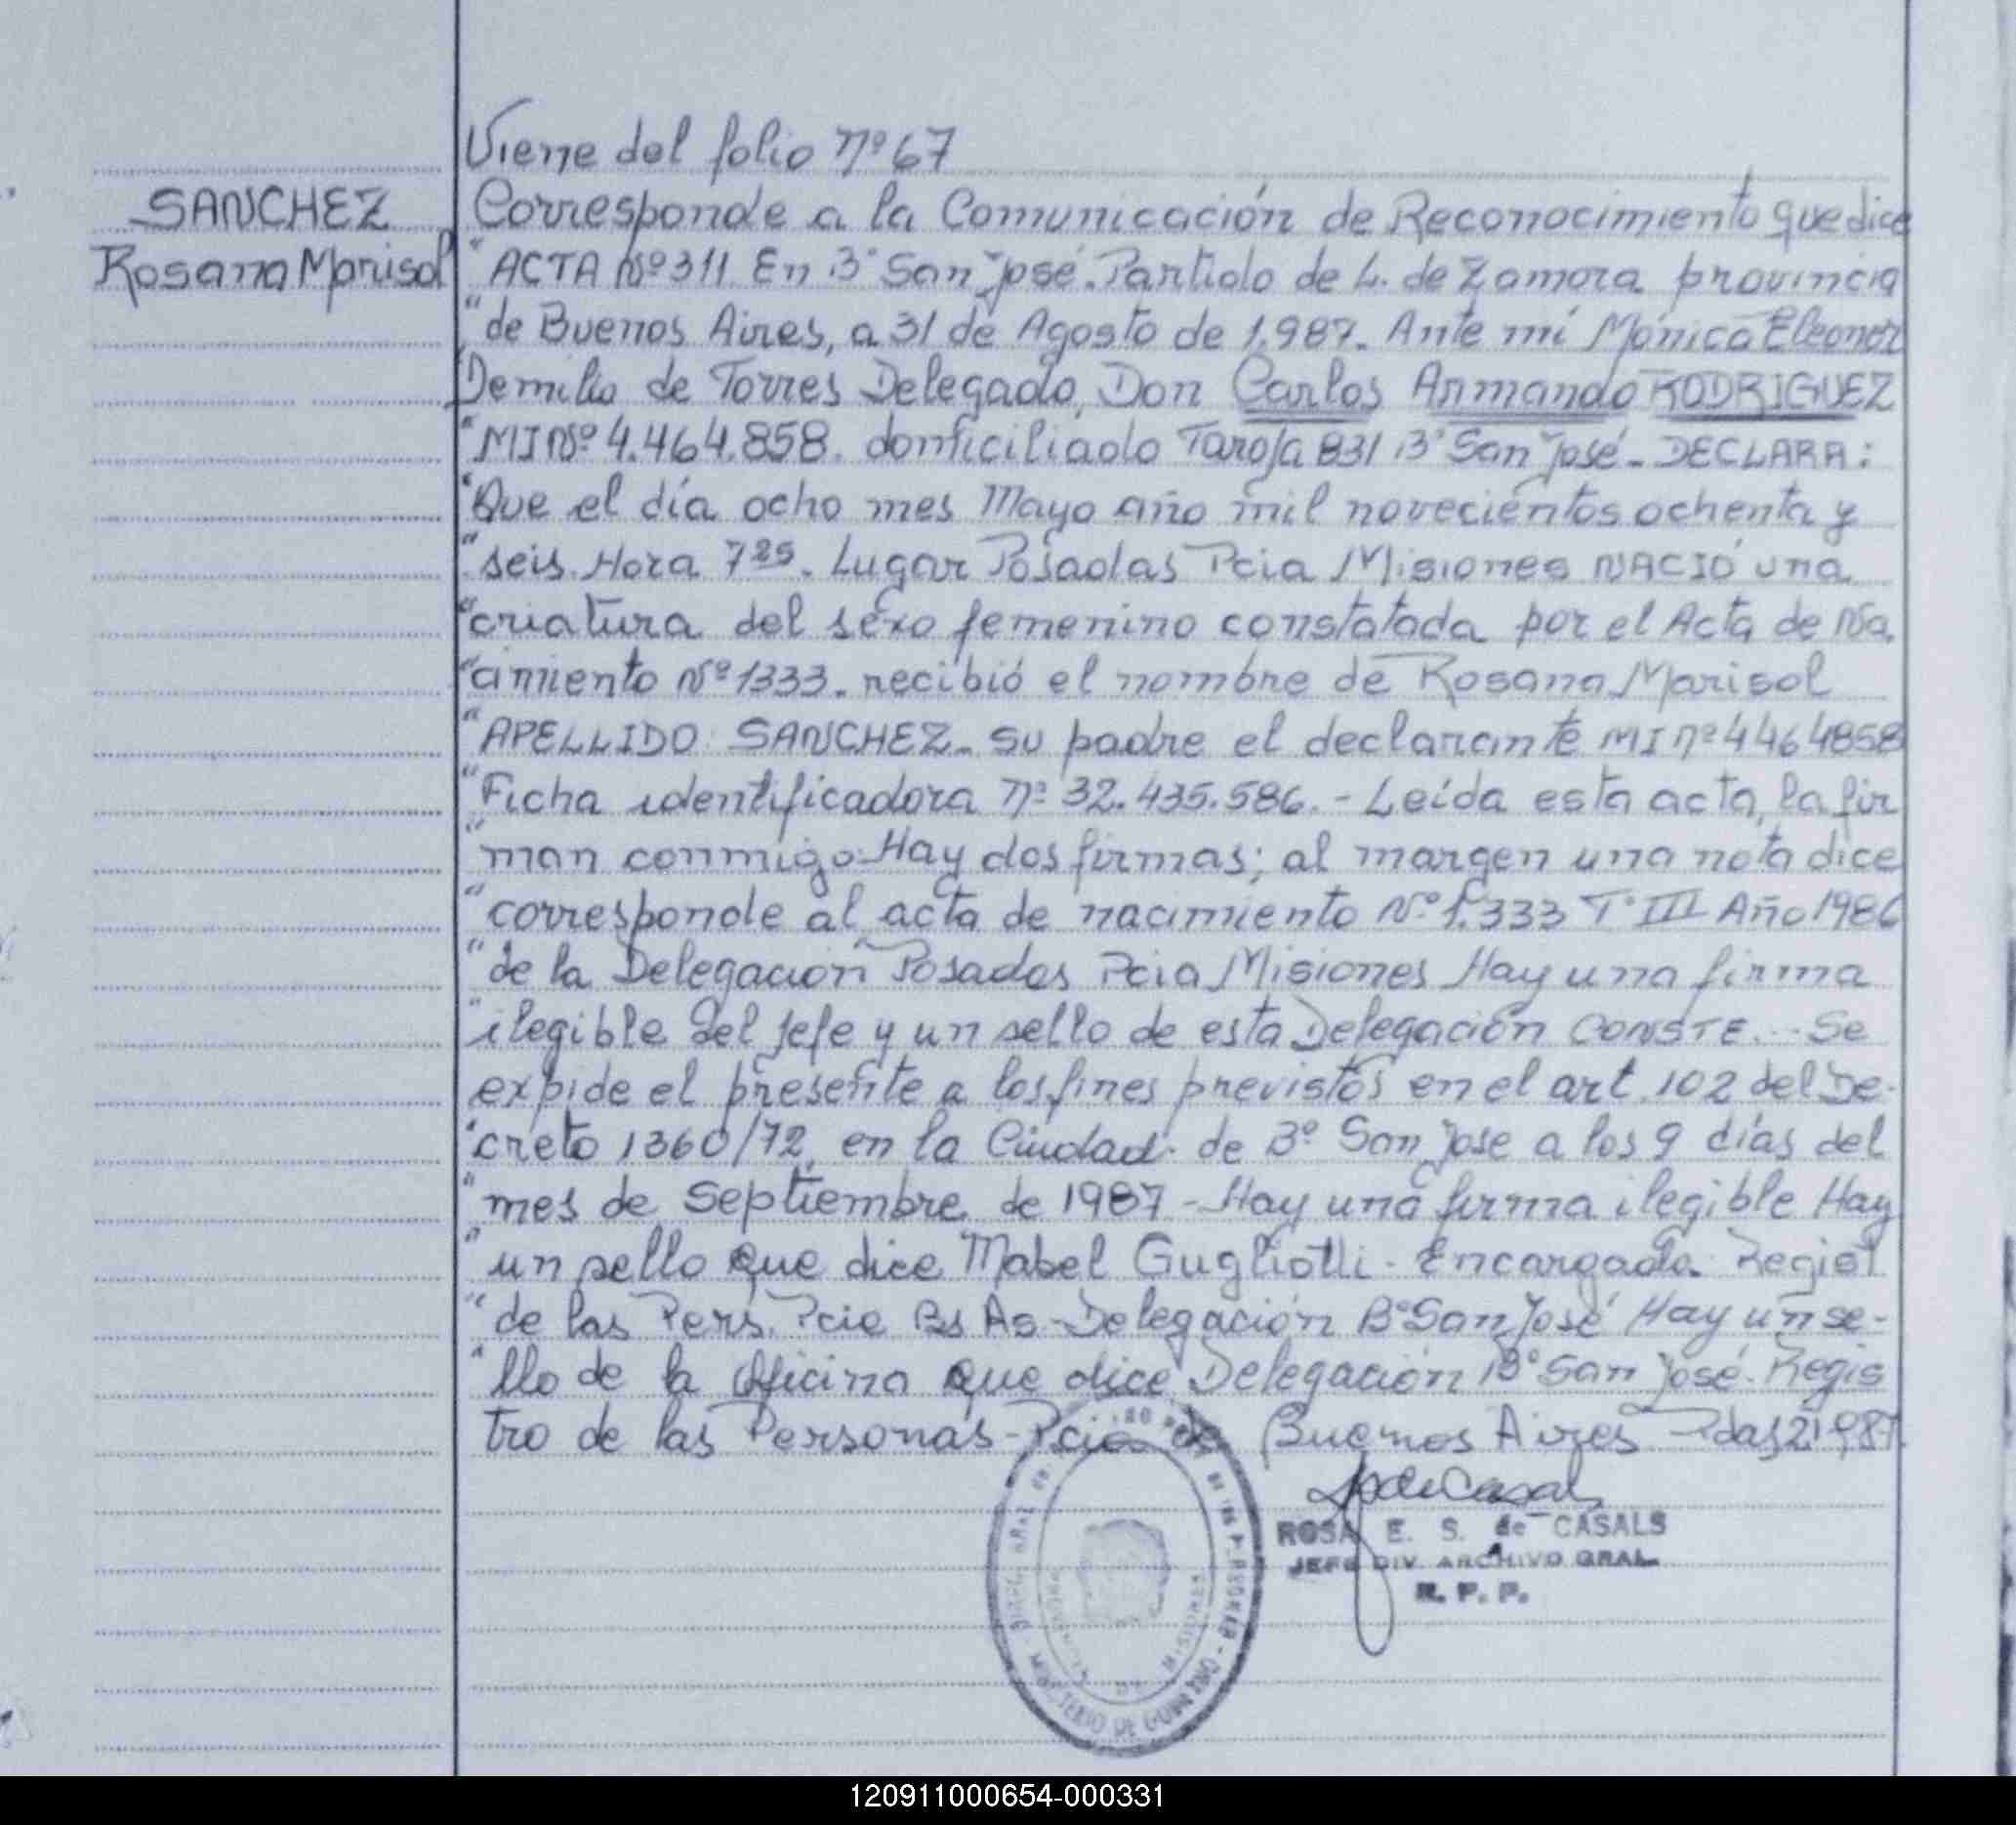 Viene del folio Nº 67
SANCHEZ
Rosana Marisol
Corresponde a la Comunicación de Reconocimiento que dice
"ACTA Nº 311. En Bº San José. Partido de L. de Zamora provincia
"de Buenos Aires, a 31 de Agosto de 1.987. Ante mí Mónica Eleonor
Demilio de Torres Delegado, Don Carlos Armando RODRIGUEZ
"MI Nº 4.464.858. domiciliado 831 Bº San José - DECLARA:
"Que el día ocho mes Mayo año mil novecientos ochenta y
"seis. Hora 7 25. Lugar Posadas Pcia Misiones NACIÓ una
"criatura del sexo femenino constatada por el Acta de Na.
"cimiento Nº 1333. recibió el nombre de Rosana Marisol
"APELLIDO SANCHEZ. su padre el declarante MI nº 4464858
"Ficha identificadora Nº 32.435.586. - Leída esta acta, la fir
"man conmigo. Hay dos firmas; al margen una nota dice
"corresponde al acta de nacimiento Nº 1.333 Tº III Año 1986
"de la Delegación Posadas Pcia Misiones Hay una firma
"ilegible del Jefe y un sello de esta Delegación CONSTE. - Se
expide el presente a los fines previstos en el art. 102 del De-
"creto 1360/72, en la Ciudad de Bº San José a los 9 días del
"mes de Septiembre de 1987 - Hay una firma ilegible Hay
"un sello que dice Mabel Gugliotti - Encargada Regist
"de las Pers. Pcia Bs As - Delegación Bº San José Hay un se-
"llo de la Oficina que dice Delegación Bº San José. Regis
tro de las Personas - Pcia de Buenos Aires Pdas
ROSA E. S. de CASALS
JEFE DIV. ARCHIVO GRAL
R. P. P.
MINISTERIO DE GOBIERNO
PROVINCIA DE MISIONES
120911000654-000331